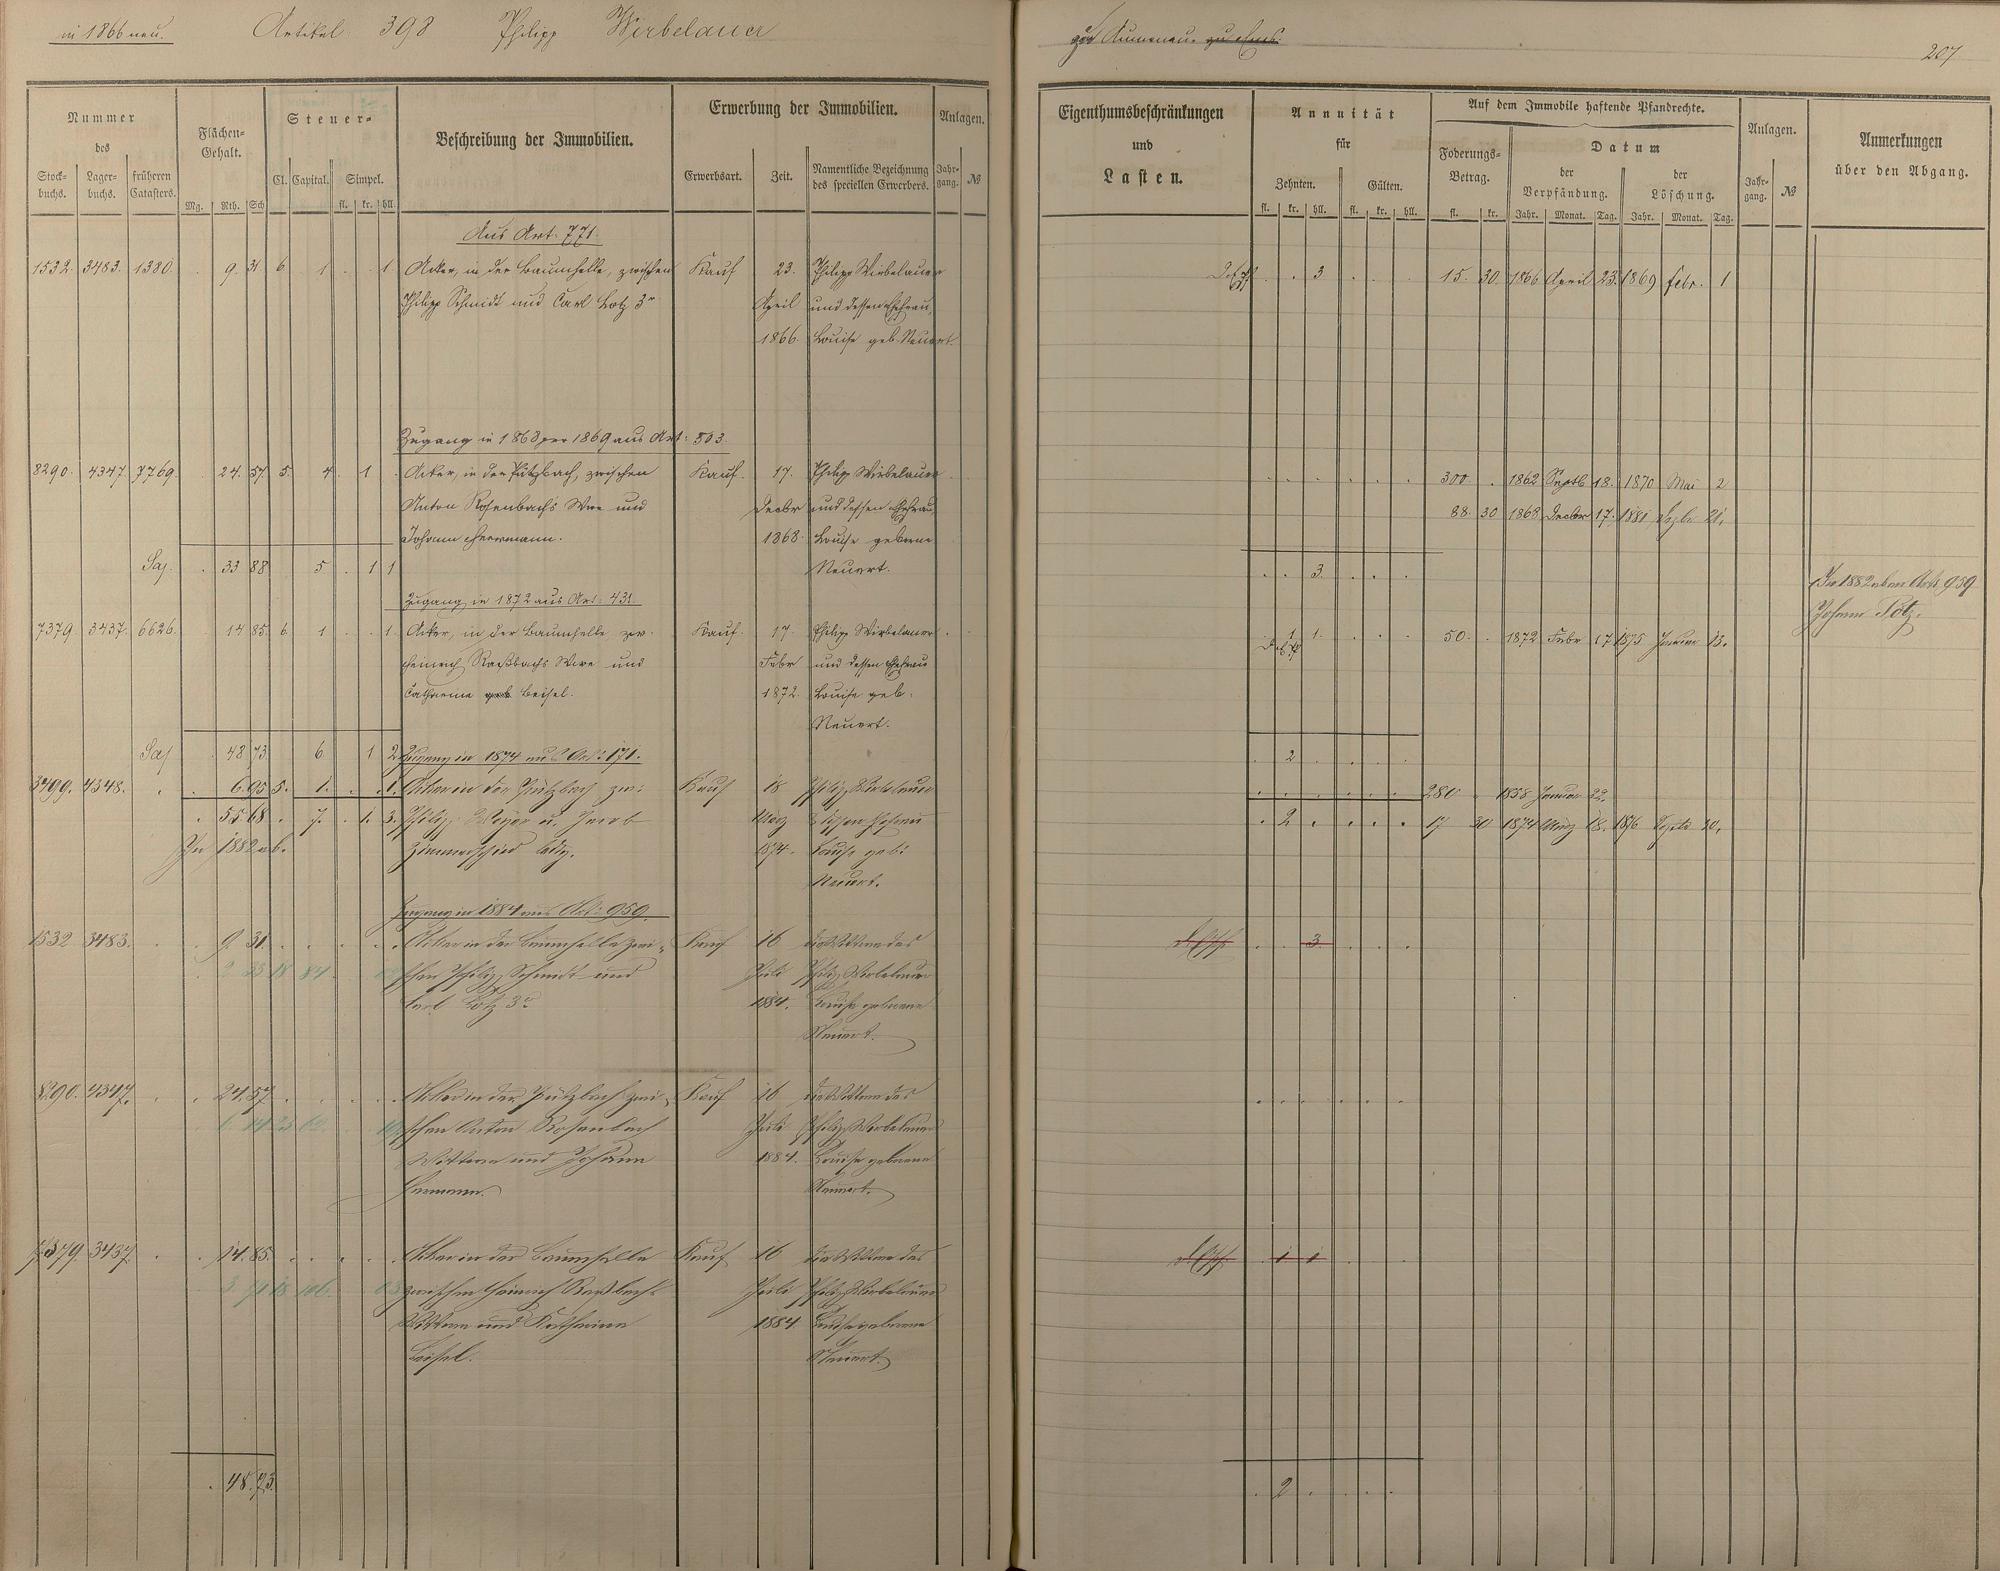 in 1866 neu. Artikel 398 Philipp Wirbelauer
Nummer
des
Stock-
buchs.
Lager-
buchs.
früheren
Catasters.
Flächen-
Gehalt.
Mg. Rth. Sch
Steuer-
Cl. Capital. Simpel.
fl. kr. hll.
Beschreibung der Immobilien.
Erwerbung der Immobilien.
Erwerbsart. Zeit.
Namentliche Bezeichnung
des speciellen Erwerbers.
Anlagen.
Jahr-
gang. №
Aus Art. 771.
1532. 3483. 1380. . 9. 31. 6. 1 . . 1 Acker, in der Baumhelle, zwischen Kauf 23. Philipp Wirbelauer
Philipp Schmidt und Carl Lotz 3r April und dessen Ehefrau,
1866. Louise geb. Neuert.
Zugang in 1868 per 1869 aus Art: 803.
8290. 4347. 7769. . 24. 57. 5. 4 . 1 . Acker, in der Pützbach, zwischen Kauf. 17. Philipp Wirbelauer
Anton Rosenbachs Wwe und Decbr und dessen Ehefrau,
Johann Herrmann. 1868. Louise geborne
33 88 5 . 1 1 Neuert.
Zugang in 1872 aus Art: 431.
7379. 3437. 6626. . 14 85. 6. 1 . . 1. Acker, in der Baumhelle zw. Kauf. 17. Philipp Wirbelauer
Heinrich Raßbachs Wwe und Febr und dessen Ehefrau
Catharina geb. Beisel. 1872. Louise geb.
Neuert.
. 48 73. 6 1 2 Zugang in 1874 aus Art: 171.
3499. 4348. . . 6 95 5. 1. . . 1. Acker in der Pützbach zw: Kauf 18 Philipp Wirbelauer
. 55 68 . 7. . 1. 3. Philipp u. Jacob März dessen Ehefrau
In 1882 ab. Zimmerschied ledig. 1874. Louise geb:
Neuert.
Zugang in 1884 aus Art: 959.
1532 3483. . . 9 31. . . . . . Acker in der Baumhelle zwi- Kauf 16 die Wittwe des
schen Philipp Schmidt und Juli Philipp Wirbelauer
Carl Lotz 3r 1884. Louise geborene
Neuert.
8290. 4347. . . 24. 57. . . . . . Acker in der Pützbach zwi- Kauf 16 die Wittwe des
schen Anton Rosenbach Juli Philipp Wirbelauer
Wittwe und Johann 1884. Louise geborene
Hermann. Neuert.
7379. 3437. . . 14. 85. . . . . . Acker in der Baumhelle Kauf 16 die Wittwe des
zwischen Heinrich Raßbach's Juli Philipp Wirbelauer
Wittwe und Katharina 1884. Louise geborene
Beisel. Neuert.
. 48. 73.
Aumenau. zu Ems.
207
Eigenthumsbeschränkungen
und
Lasten.
Annuität
für
Zehnten. Gülten.
fl. kr. hll. fl. kr. hll.
Auf dem Immobile haftende Pfandrechte.
Foderungs-
Betrag.
fl. kr.
Datum
der
Verpfändung.
der
Löschung.
Jahr. Monat. Tag. Jahr. Monat. Tag.
Anlagen.
Jahr-
gang. №
Anmerkungen
über den Abgang.
. . 3 . . . 15. 30. 1866 April 23. 1869 Febr. 1
. . . . . . 300. . 1862 Septb 18. 1870 Mai 2
88. 30 1868 Decbr 17. 1881 Dezbr 21.
. . 3. . . .
In 1882 aben Art. 959
Johann Lotz.
1 1. . . . 50. . 1872 Febr 17 1875 Januar 15.
. 2 . . . .
. . . . . . 280 . 1858 Januar 22.
. 2. . . . . 17 30 1874 März 18. 1876 Septb 20.
. . 3. . . .
. . . . . .
. 1 1 . . .
. 2 . . . .